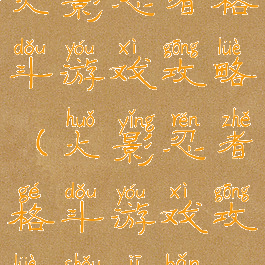 火影忍者格
dǒu yóu xì gōng lüè
斗游戏攻略
huǒ yǐng rěn zhě
(火影忍者
gé dǒu yóu xì gōng
格斗游戏攻